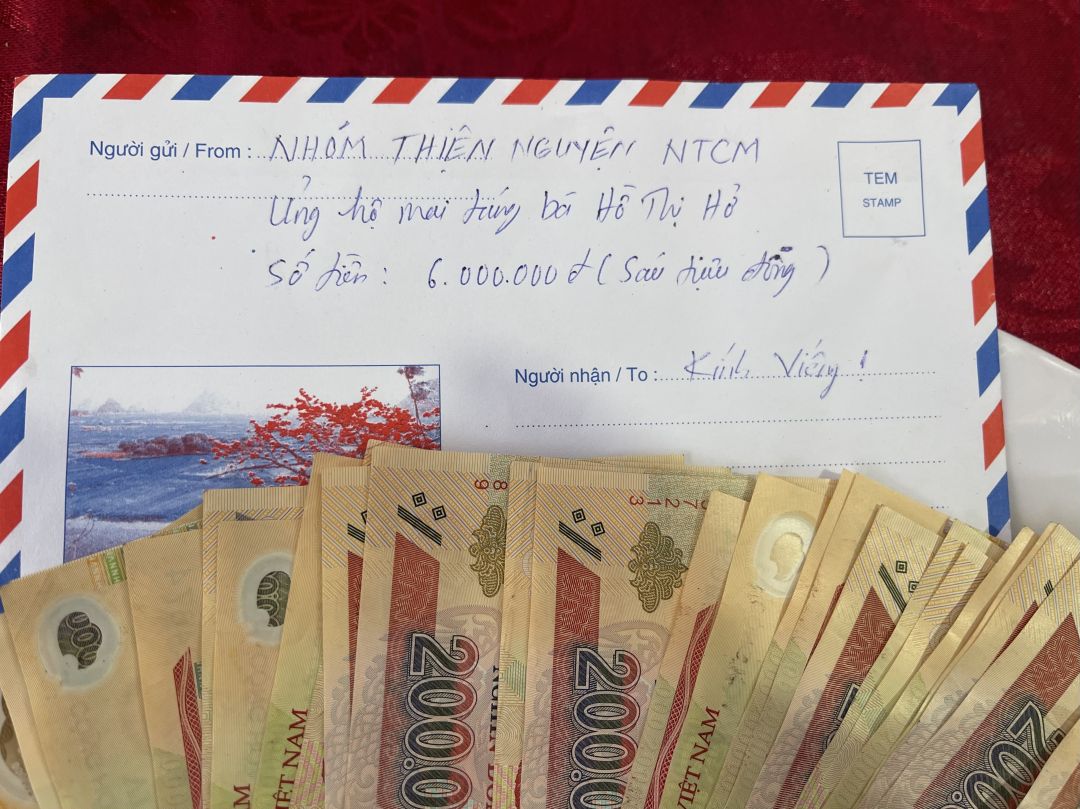 Người gửi / From : NHÓM THIỆN NGUYỆN NTCM
TEM
STAMP
Ủng hộ mai táng bà Hồ Thị Hở
Số tiền : 6.000.000 đ ( Sáu triệu đồng )
Người nhận / To : Kính Viếng !
200.0
200.0
VIỆT NAM
VIỆT NAM